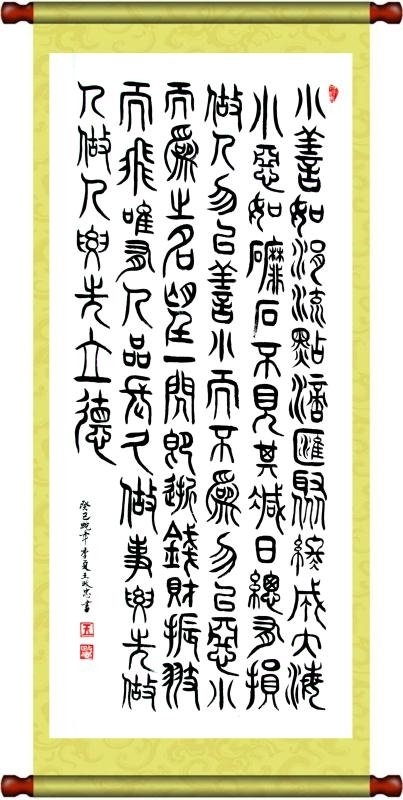 小善如涓流點滴匯聚終成大海
小惡如磨石不見其減日總有損
做人勿以善小而不為勿以惡小
而為之名望一閃即逝錢財振翅
而飛唯有人品長久做事要先做
人做人要先立德
癸巳蛇年季夏王政忠書